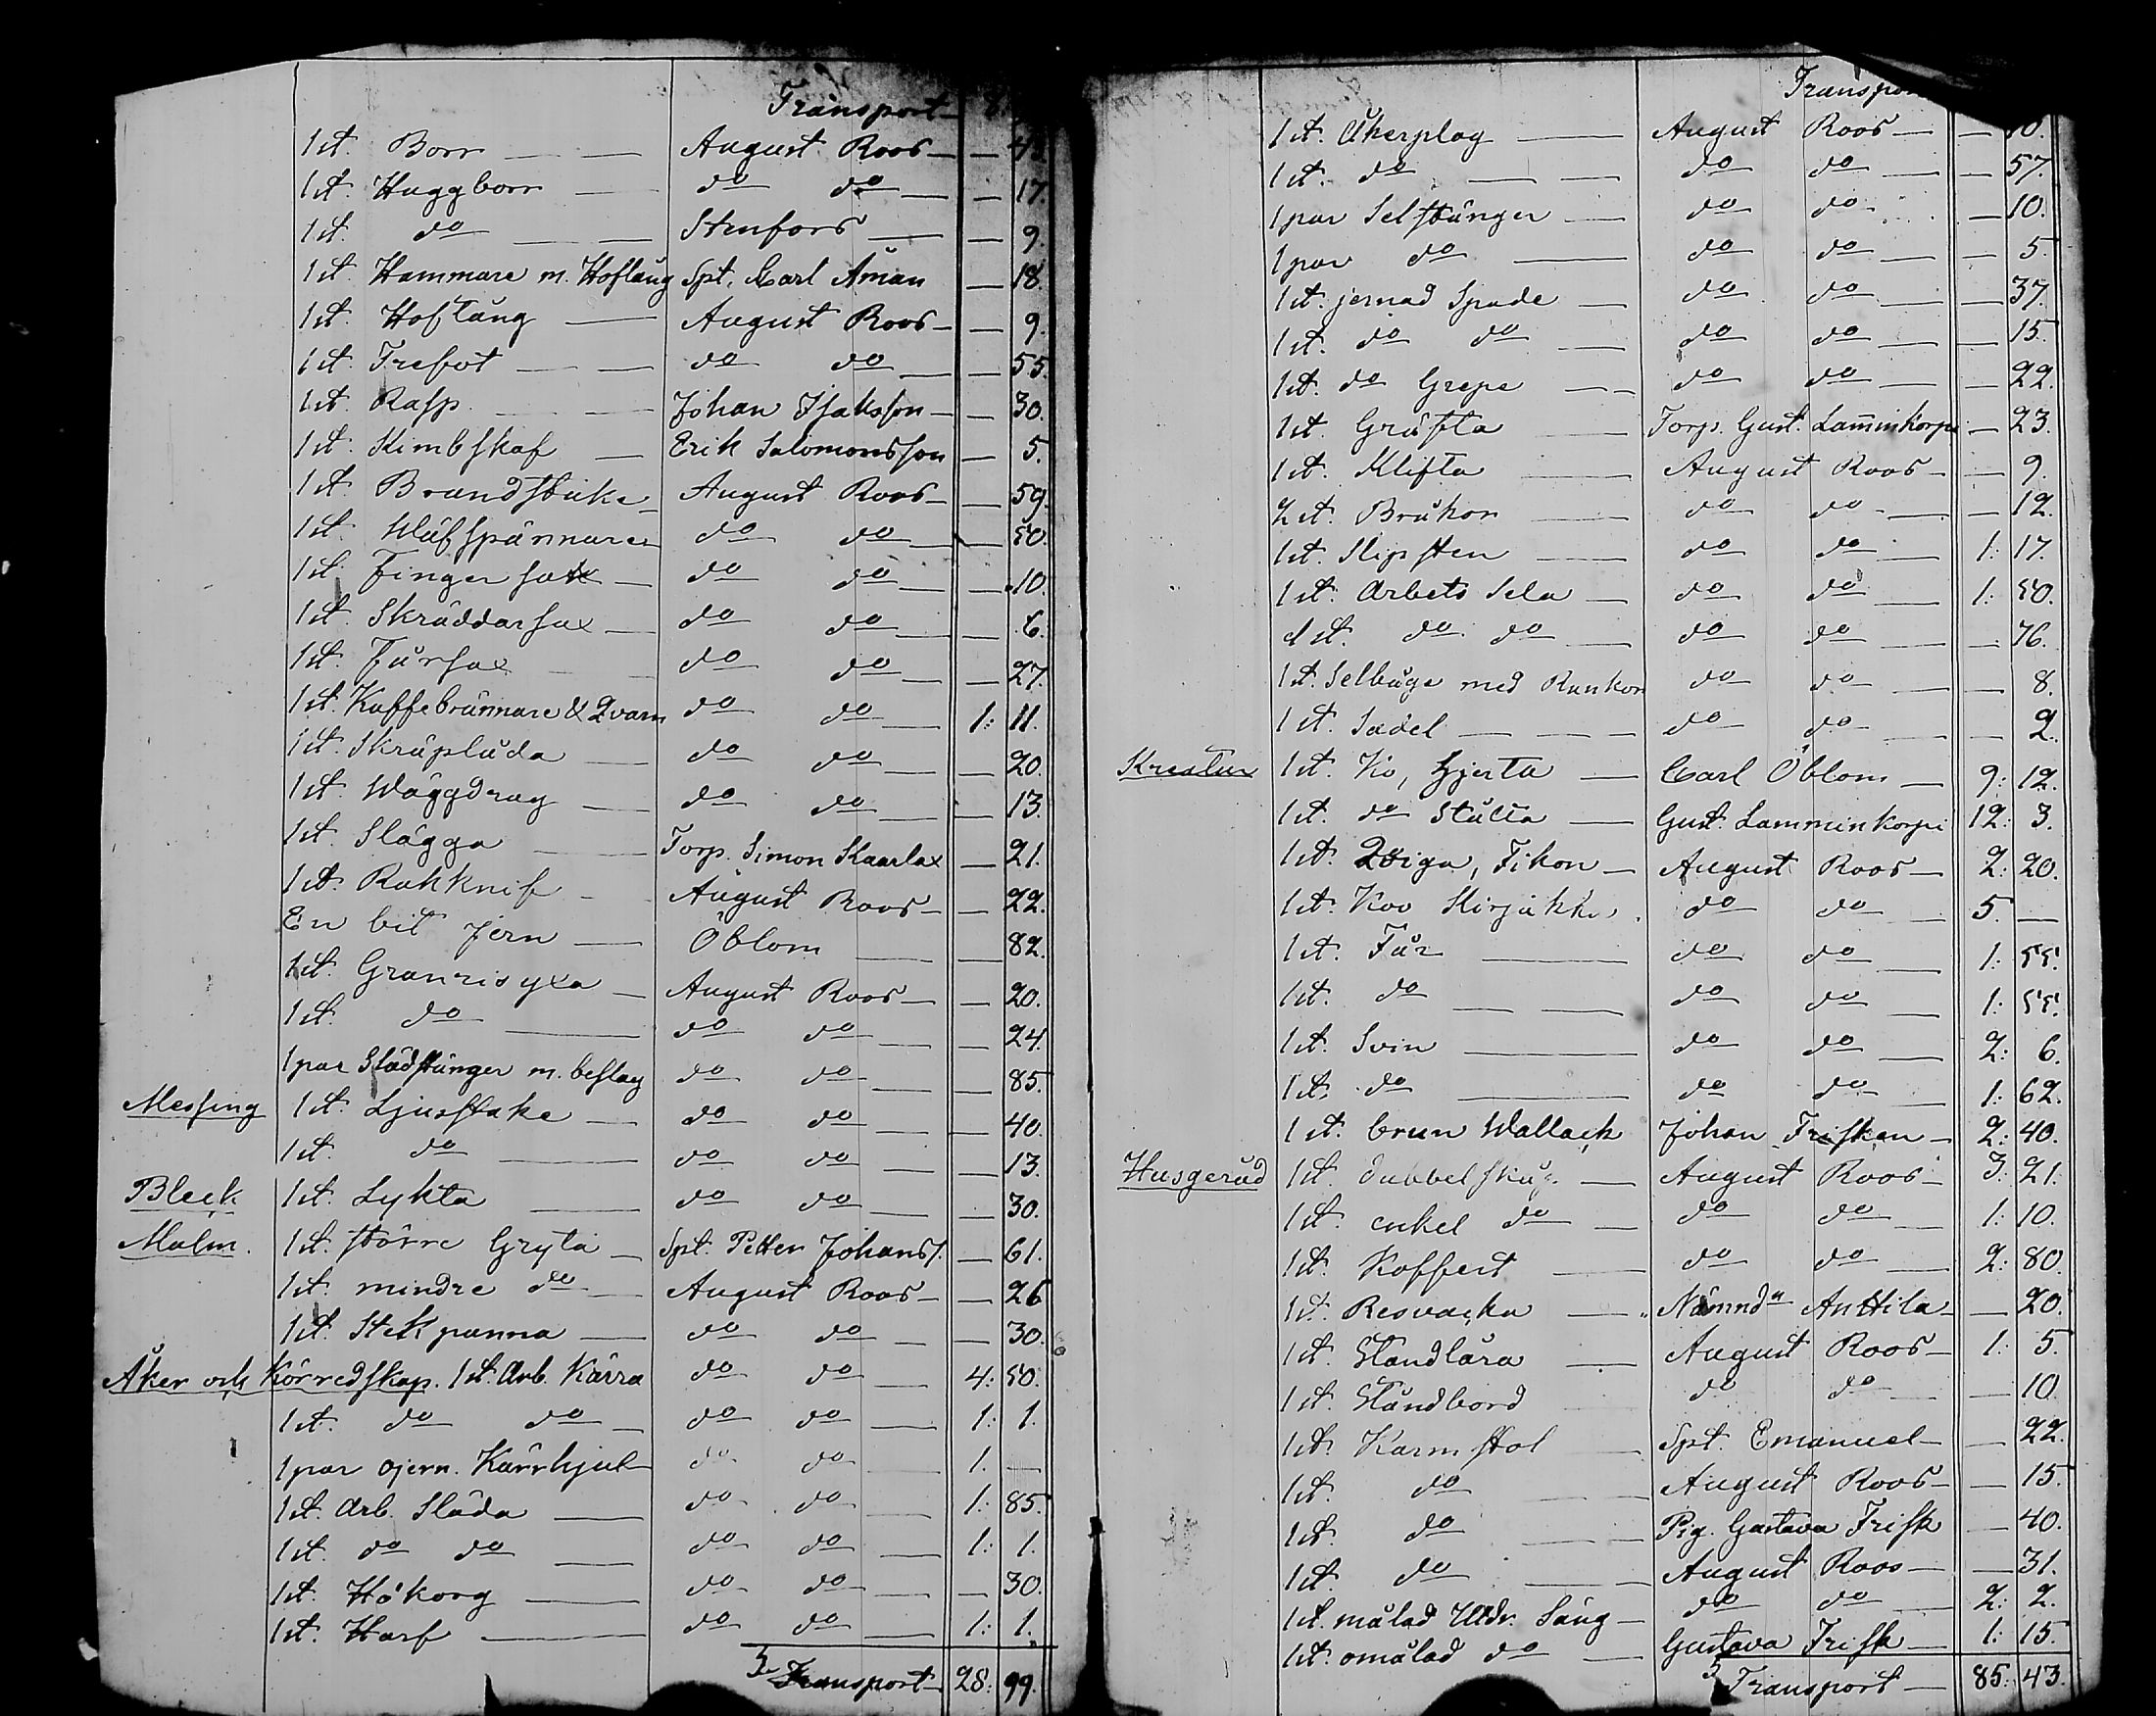 Transport
1 st. Borr — — August Roos — — 4
1 st. Huggborr — do do — — 17.
1 st. do — — Stenfors — — 9.
1 st. Hammare m. Hoftång Spt. Carl Åman — 18
1 st. Hoftång — August Roos — — 9.
1 st. Trefot — — do do — — 55.
1 st. Rasp — — Johan Isaksson — — 30.
1 st. Kimbskaf — Erik Salomonsson — 5.
1 st. Brandstake — August Roos — — 59.
1 st. Wäfspännare do do — — 50.
1 st. Fingersax — do do — — 10.
1 st. Skräddarsax — do do — — 6.
1 st. Fårsax — — do do — — 27.
1 st. Kaffebrännare & Qvarn do do — 1: 11.
1 st. Skräplåda — do do — — 20.
1 st. Wäggdrag — do do — — 13.
1 st. Slägga — Torp. Simon Skaarlax — 21.
1 st. Rakknif — August Roos — — 22.
En bit Jern — Öblom — — 82.
1 st. Granrisyxa — August Roos — — 20.
1 st. do — do do — — 24.
1 par Slädstänger m. beslag do do — — 85.
Messing 1 st. Ljusstake — do do — — 40.
1 st. do — do do — — 13.
Bleck 1 st. Lykta — do do — — 30.
Malm. 1 st. större Gryta — Spt. Petter Johanss. — 61.
1 st. mindre do — August Roos — — 26
1 st. Stekpanna — do do — — 30.
Åker och Körredskap. 1 st. Arb. Kärra do do — 4: 50.
1 st. do do — do do — 1: 1.
1 par ojern. Kärrhjul — do do — 1. —
1 st. Arb. Släda — do do — 1: 85.
1 st. do do — do do — 1: 1.
1 st. Hökorg — do do — — 30.
1 st. Harf — do do — 1: 1.
Transport — 28: 99.
Transpor
1 st. Åkerplog — August Roos — — 10.
1 st. do — — do do — — 57.
1 par Selstänger — do do — — 10.
1 par do — do do — — 5.
1 st. jernad Spade — do do — — 37.
1 st. do do — do do — — 15.
1 st. do Grepe — — do do — — 22.
1 st. Gräfta — Torp. Gust. Lam̄inkorpi — 23.
1 st. Klifta — August Roos — — 9.
2 st. Bråkor — do do — — 12.
1 st. Slipsten — do do — 1: 17.
1 st. Arbets Sela — do do — 1: 50.
1 st. do do — do do — — 76.
1 st. Selbåge med Rankor do do — — 8.
1 st. Sadel — — — do do — — 2.
Kreatur 1 st. Ko, Hjerta — Carl Öblom — 9: 12.
1 st. do Stätta — Gust. Lamminkorpi 12: 3.
1 st. Qviga, Fikon — August Roos — 2: 20.
1 st. Koo Kirjakka. do do — 5. —
1 st. Får — do do — 1: 55.
1 st. do — — do do — 1: 55.
1 st. Svin — do do — 2: 6.
1 st. do — do do — 1: 62.
1 st. brun Wallack Johan Frisken — 2: 40.
Husgeråd 1 st. dubbelskåp — August Roos — 3: 21.
1 st. enkel do — do do — 1: 10.
1 st. Koffert — do do — 2: 80.
1 st. Resvacka — Nämndn Anttila — — 20.
1 st.Ståndlåra — August Roos — 1: 5.
1 st. Ståndbord do do — — 10
1 st. Karmstol — Spt. Emanuel — — 22.
1 st. do — — August Roos — — 15.
1 st. do — — Pig. Gustava Frisk — 40.
1 st. do — — August Roos — — 31.
1 st. målad Utdr. Säng — do do — 2: 2.
1 st. omålad do — Gustava Frisk — 1: 15.
Transport — 85: 43.